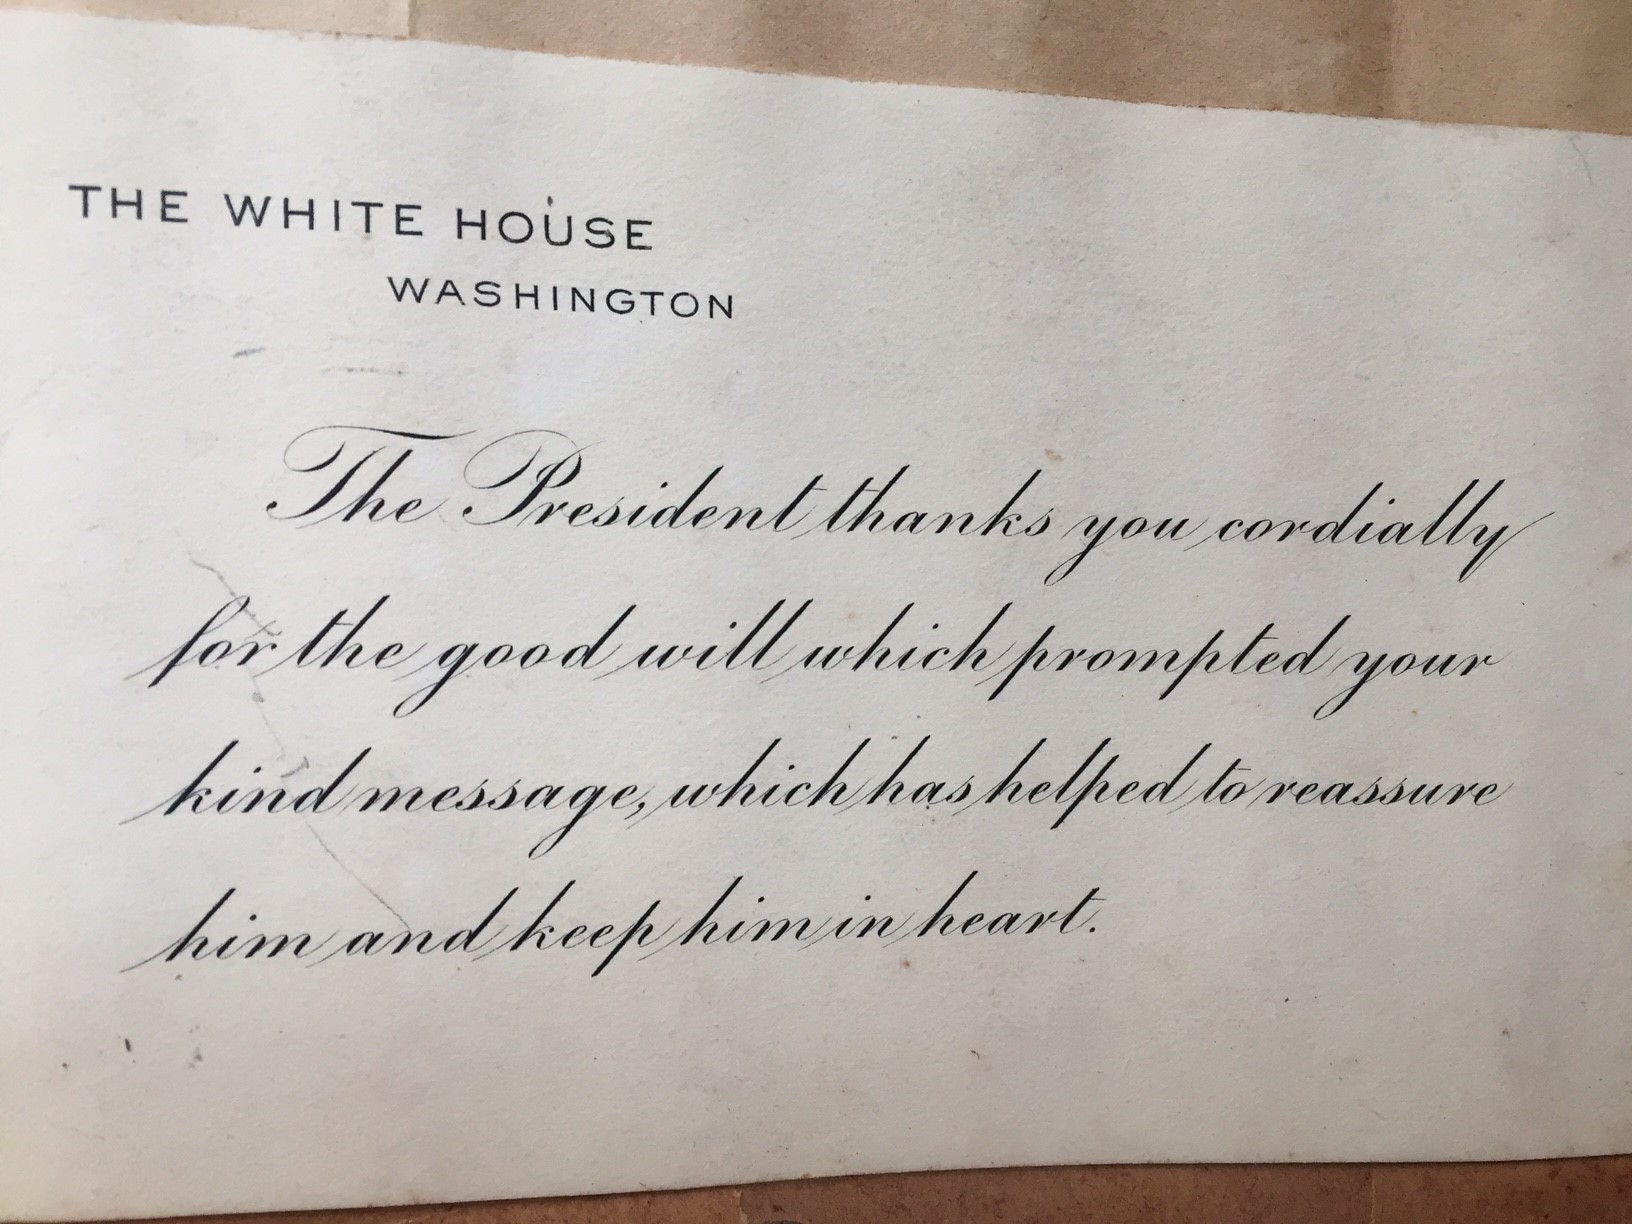 THE WHITE HOUSE
WASHINGTON
The President thanks you cordially
for the good will which prompted your
kind message, which has helped to reassure
him and keep him in heart.